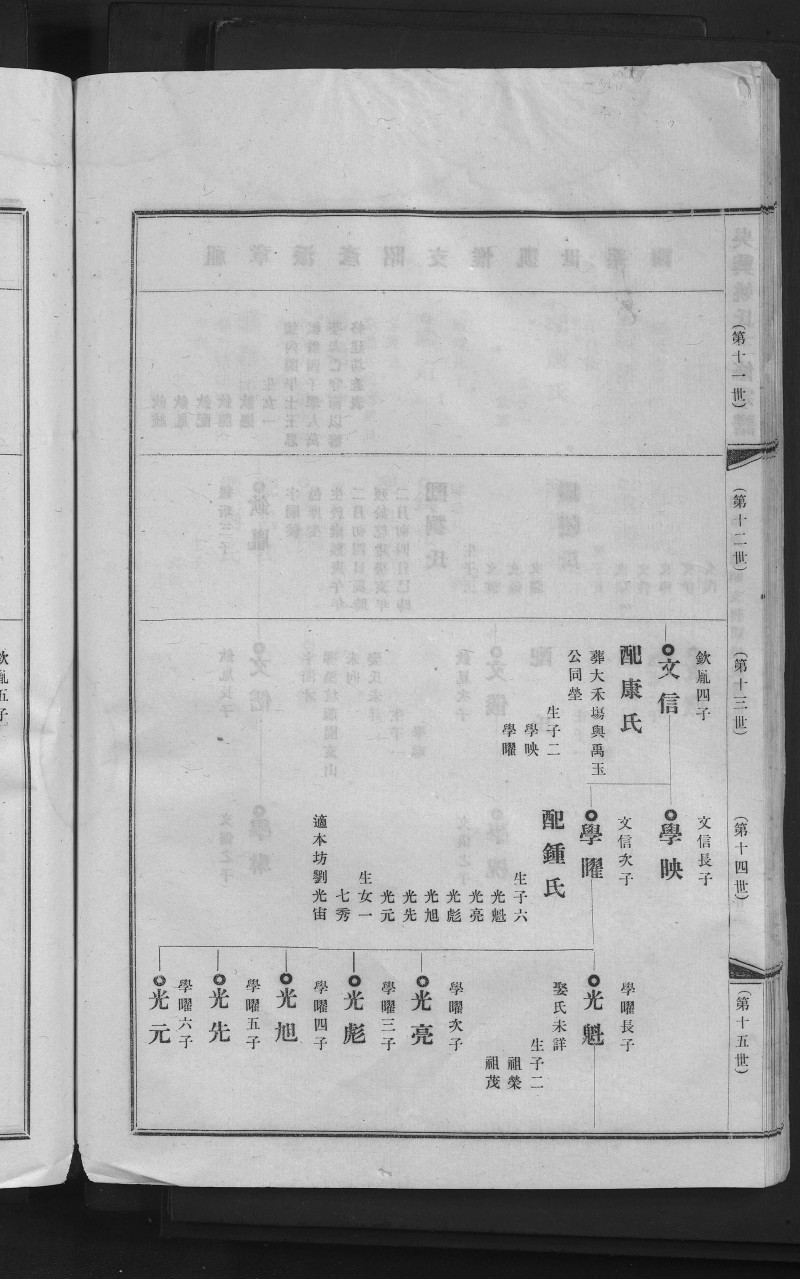 (第十一世)
(第十二世)
(第十三世)
(第十四世)
(第十五世)
欽胤四子
文信
配康氏
葬大禾塲與禹玉
公同塋
生子二
學映
學曜
文信長子
學映
文信次子
學曜
配鍾氏
生子六
光魁
光亮
光彪
光旭
光先
光元
生女一
七秀
適本坊劉光宙
學曜長子
光魁
娶氏未詳
生子二
祖榮
祖茂
學曜次子
光亮
學曜三子
光彪
學曜四子
光旭
學曜五子
光先
學曜六子
光元
欽胤五子